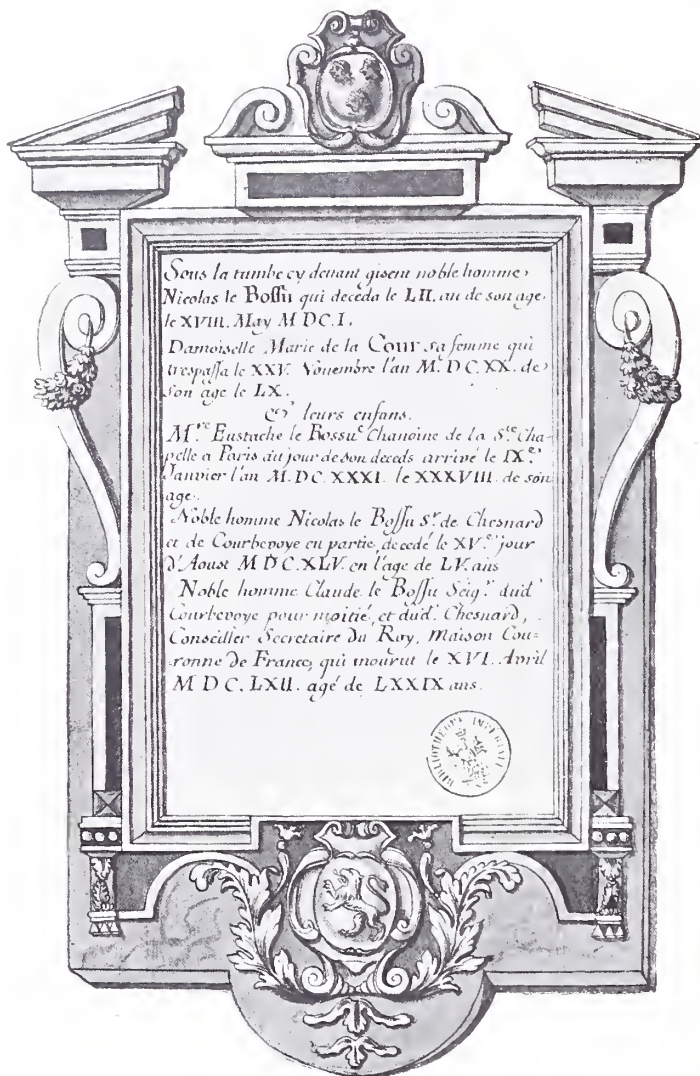 Sous la tumbe cy devant gisent noble homme,
Nicolas le Bossu qui deceda le LII. an de son age.
le XVIII. May M DC. I.
Damoiselle Marie de la Cour sa femme qui
trespassa le XXV. Novembre l'an M. DC. XX. de
son âge le LX.
& leurs enfans.
M.re Eustache le Bossu Chanoine de la S.te Cha-
pelle a Paris au jour de son deceds arrivé le IX.e
Janvier l'an M. DC. XXXI. le XXXVIII. de son
age.
Noble homme Nicolas le Bossu S.r de Chesnard
et de Courbevoye en partie, decedé le XV.e jour
d'Aoust M DC. XLV. en l'age de LV. ans
Noble homme Claude le Bossu Seig.r dud.
Courbevoye pour moitié, et dud. Chesnard,
Conseiller Secretaire du Roy, Maison Cou-
ronne de France, qui mourut le XVI. Avril
M DC. LXII. agé de LXXIX ans.